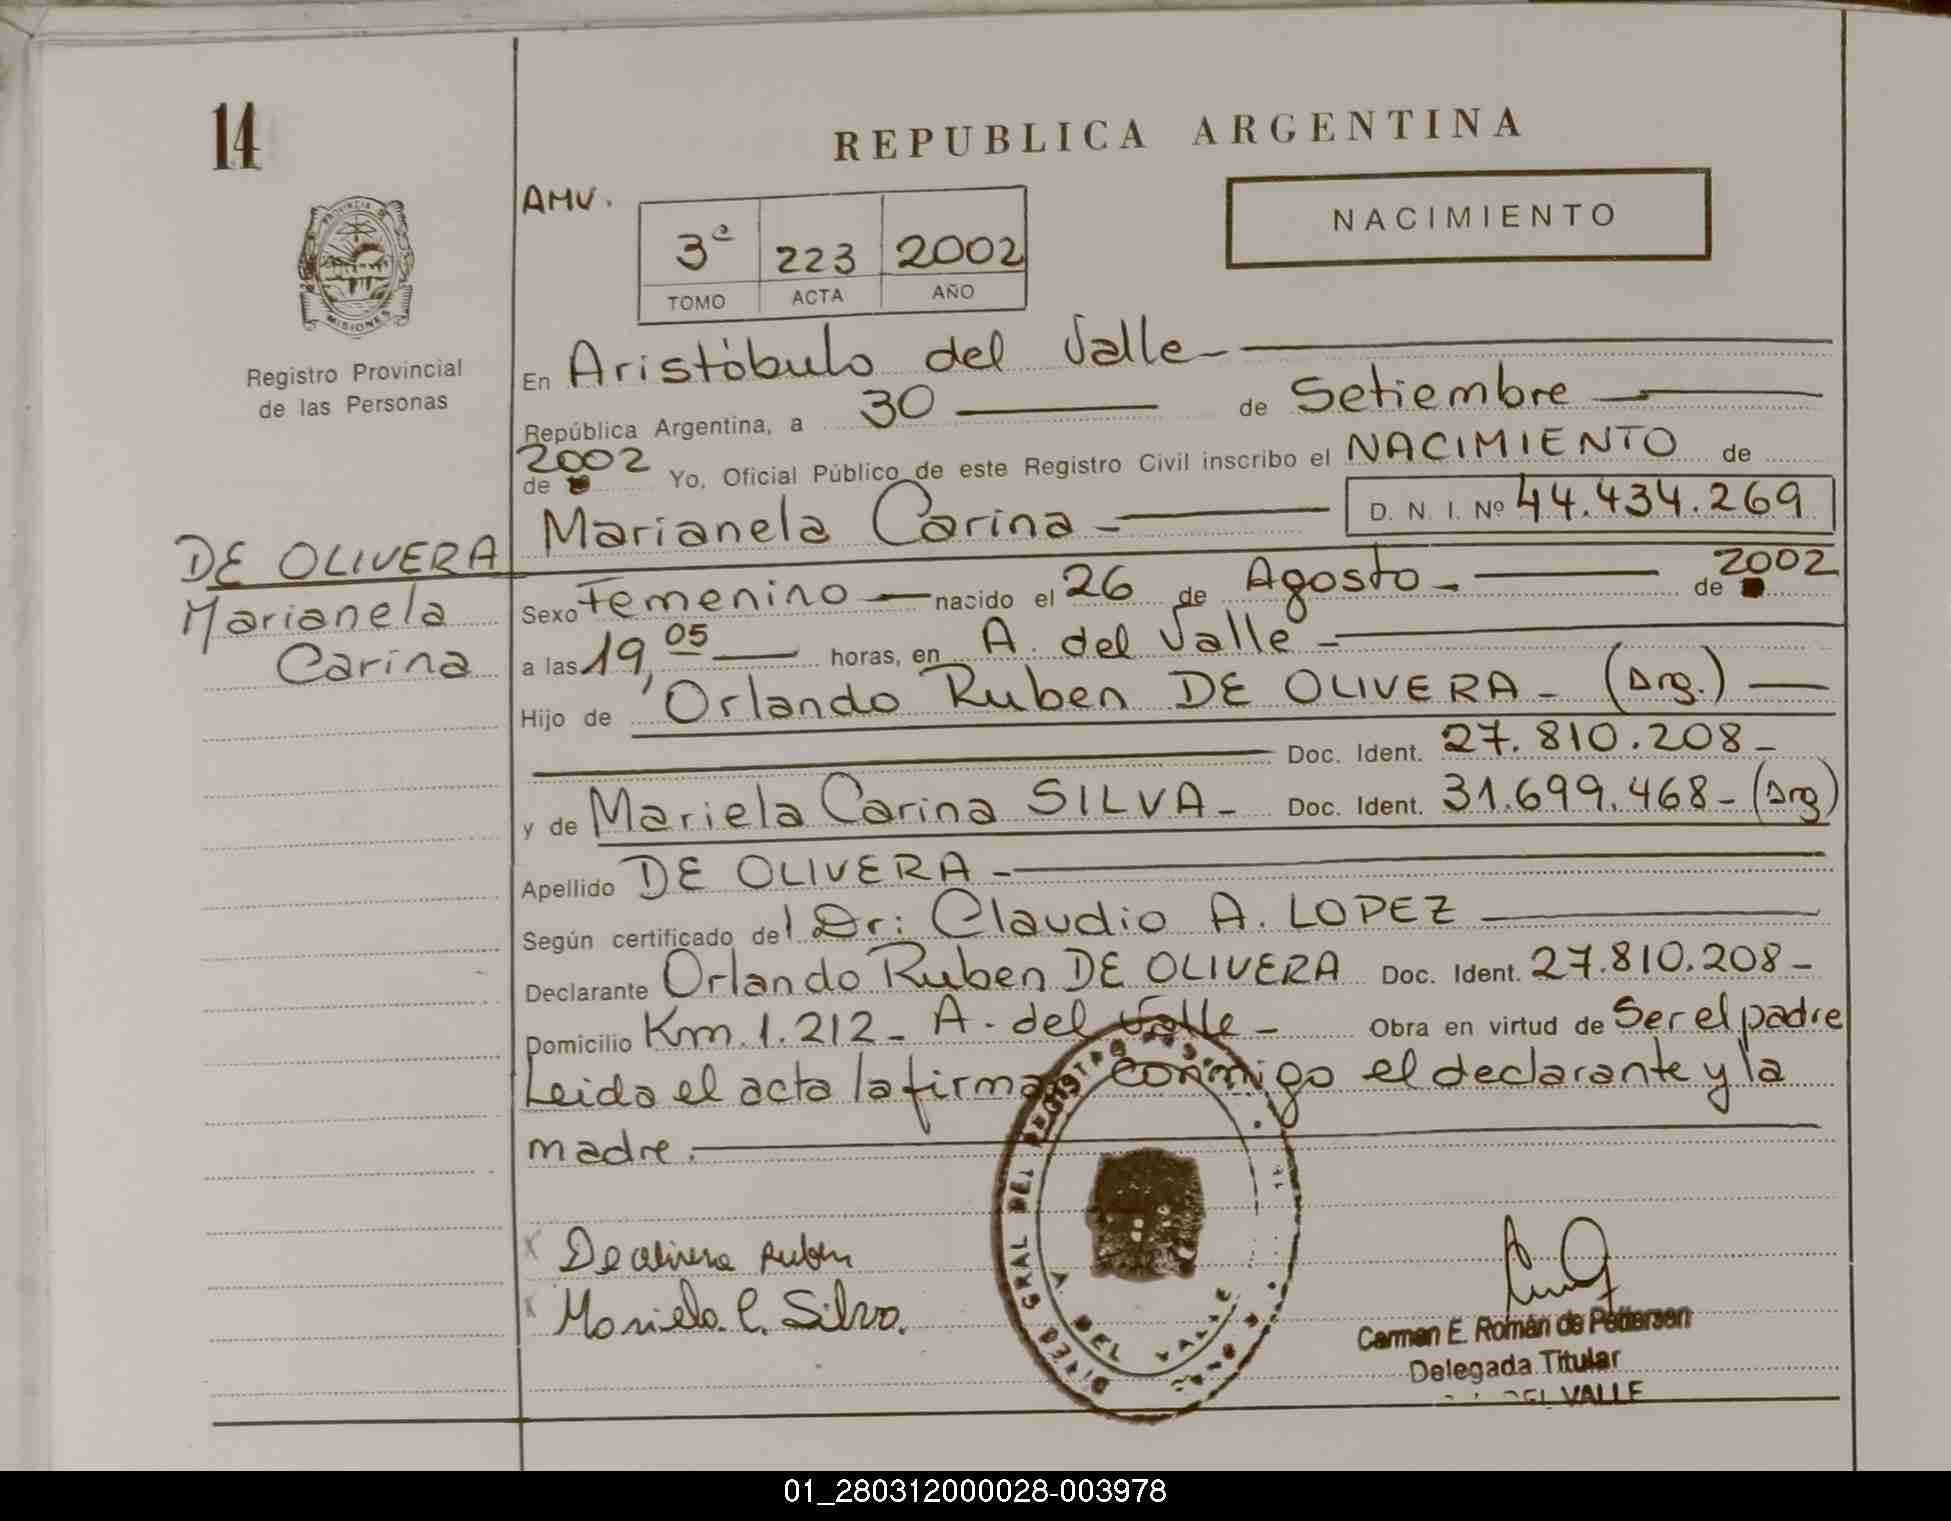 14
REPUBLICA ARGENTINA
AMV.
NACIMIENTO
3º 223 2002
TOMO ACTA AÑO
PROVINCIA DE MISIONES
Registro Provincial
de las Personas
En Aristóbulo del Valle
República Argentina, a 30 de Setiembre
2002
de Yo, Oficial Público de este Registro Civil inscribo el NACIMIENTO de
Marianela Carina D. N. I. Nº 44.434.269
DE OLIVERA
Marianela
Carina
Sexo Femenino nacido el 26 de Agosto de 2002
a las 19,05 horas, en A. del Valle
Hijo de Orlando Ruben DE OLIVERA (Arg.)
Doc. Ident. 27.810.208
y de Mariela Carina SILVA Doc. Ident. 31.699.468 (Arg)
Apellido DE OLIVERA
Según certificado del Dr: Claudio A. LOPEZ
Declarante Orlando Ruben DE OLIVERA Doc. Ident. 27.810.208
Domicilio Km. 1.212 - A. del Valle Obra en virtud de Ser el padre
Leida el acta la firman conmigo el declarante y la
madre.
De olivera Ruben
Mariela C. Silva.
GRAL DEL REGISTRO
A. DEL VALLE
Carmen E. Román de Pettersen
Delegada Titular
DEL VALLE
01_280312000028-003978